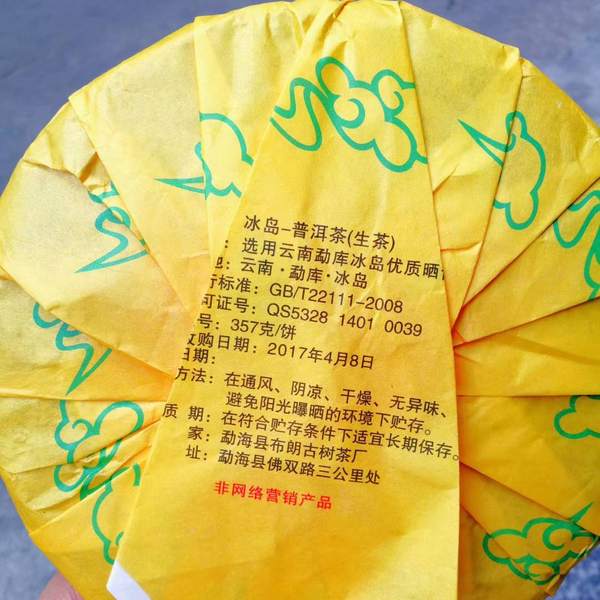 冰岛-普洱茶(生茶)
：选用云南勐库冰岛优质晒
：云南·勐库·冰岛
行标准：GB/T22111-2008
可证号：QS5328 1401 0039
号：357克/饼
收购日期：2017年4月8日
日期：
方法：在通风、阴凉、干燥、无异味、
避免阳光曝晒的环境下贮存。
质 期：在符合贮存条件下适宜长期保存。
家：勐海县布朗古树茶厂
址：勐海县佛双路三公里处
非网络营销产品